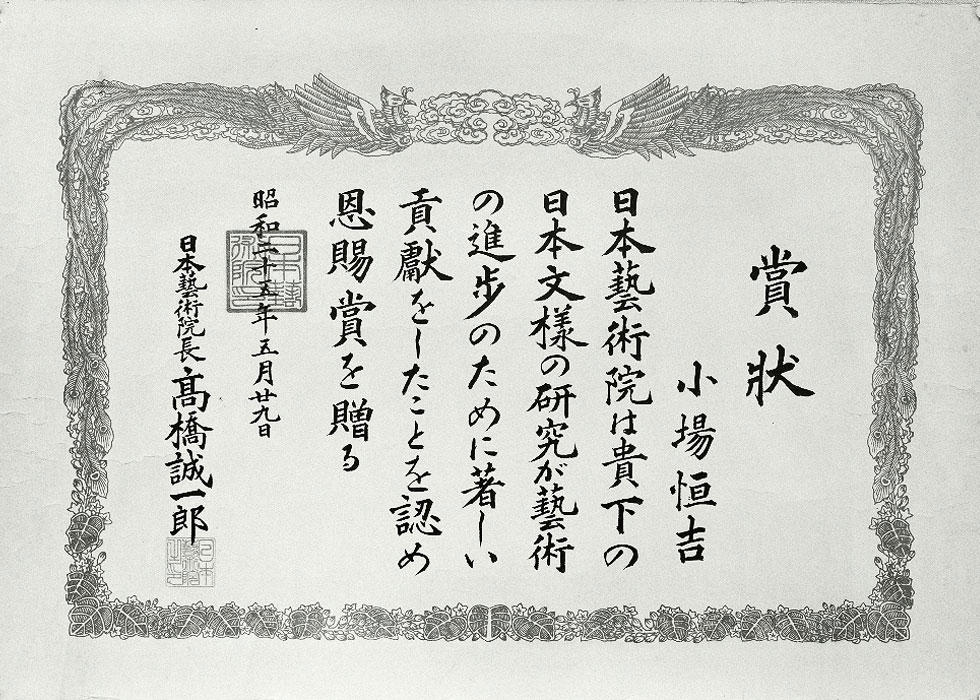 賞狀
小場恒吉
日本藝術院は貴下の
日本文樣の研究が藝術
の進歩のために著しい
貢獻をしたことを認め
恩賜賞を贈る
昭和二十五年五月廿九日
日本藝術院長髙橋誠一郎